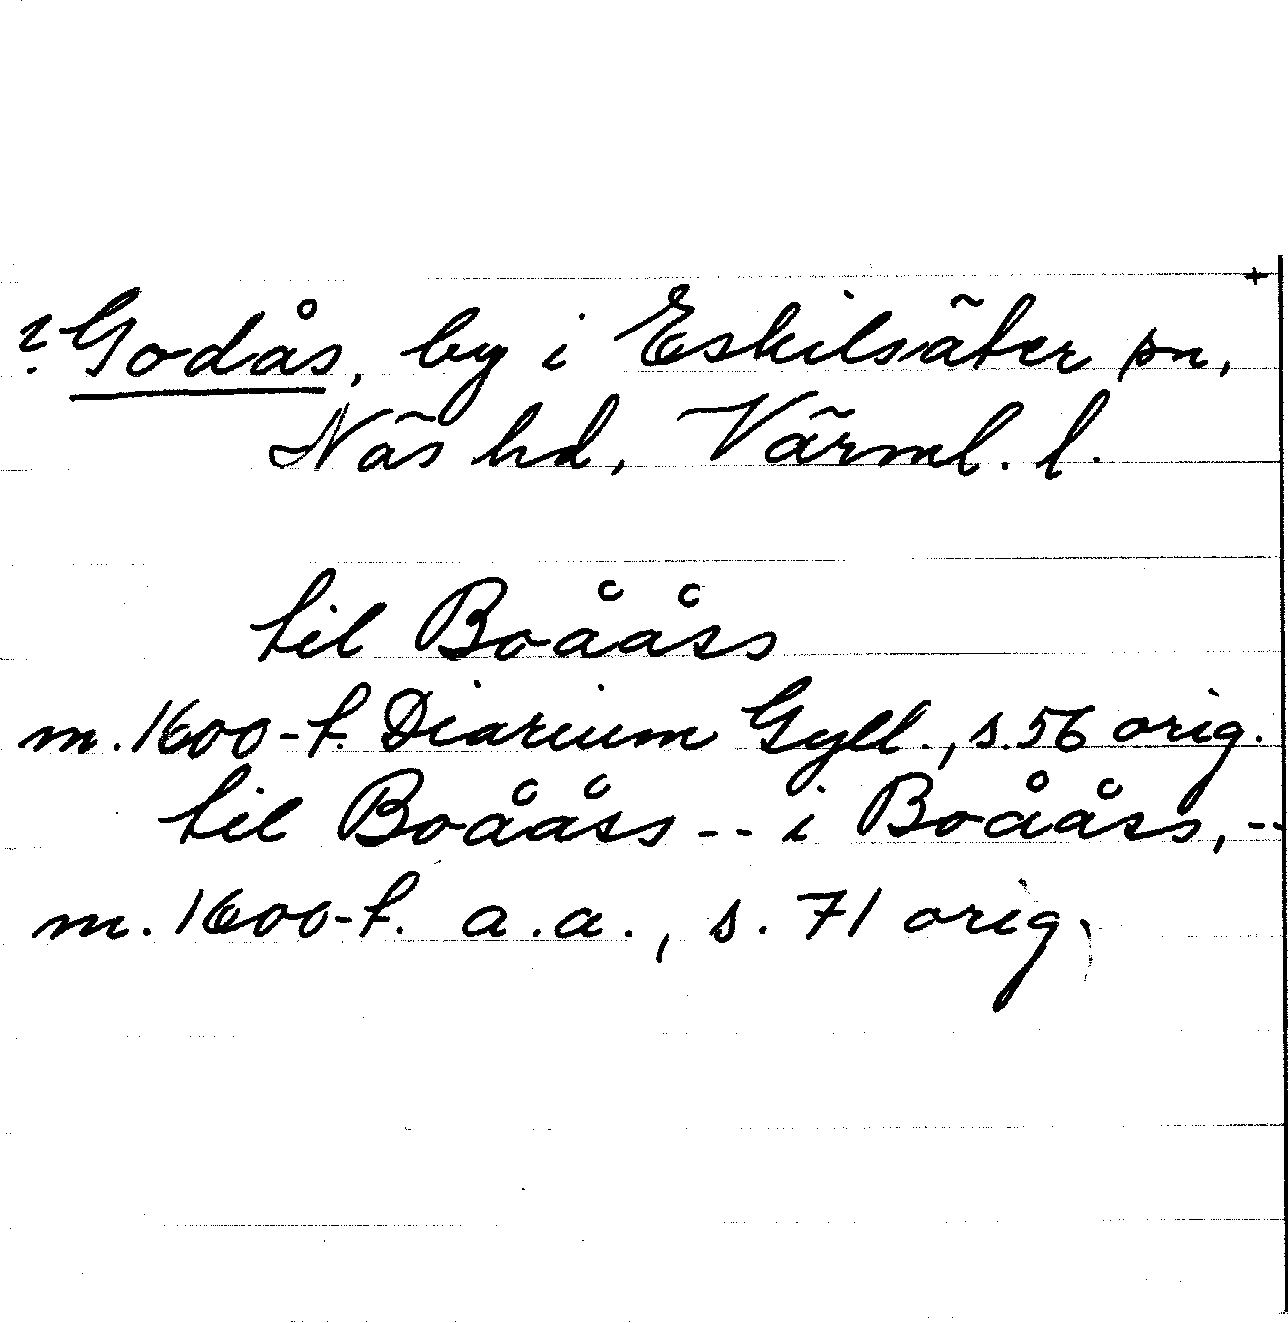 ? Godås, by i Eskilsäter sn,
Näs hd, Värml. l.
til Boååss
m. 1600-t. Diarium Gyll., s. 56 orig.
til Boååss -- i Boååss, --
m. 1600-t. a.a., s. 71 orig.